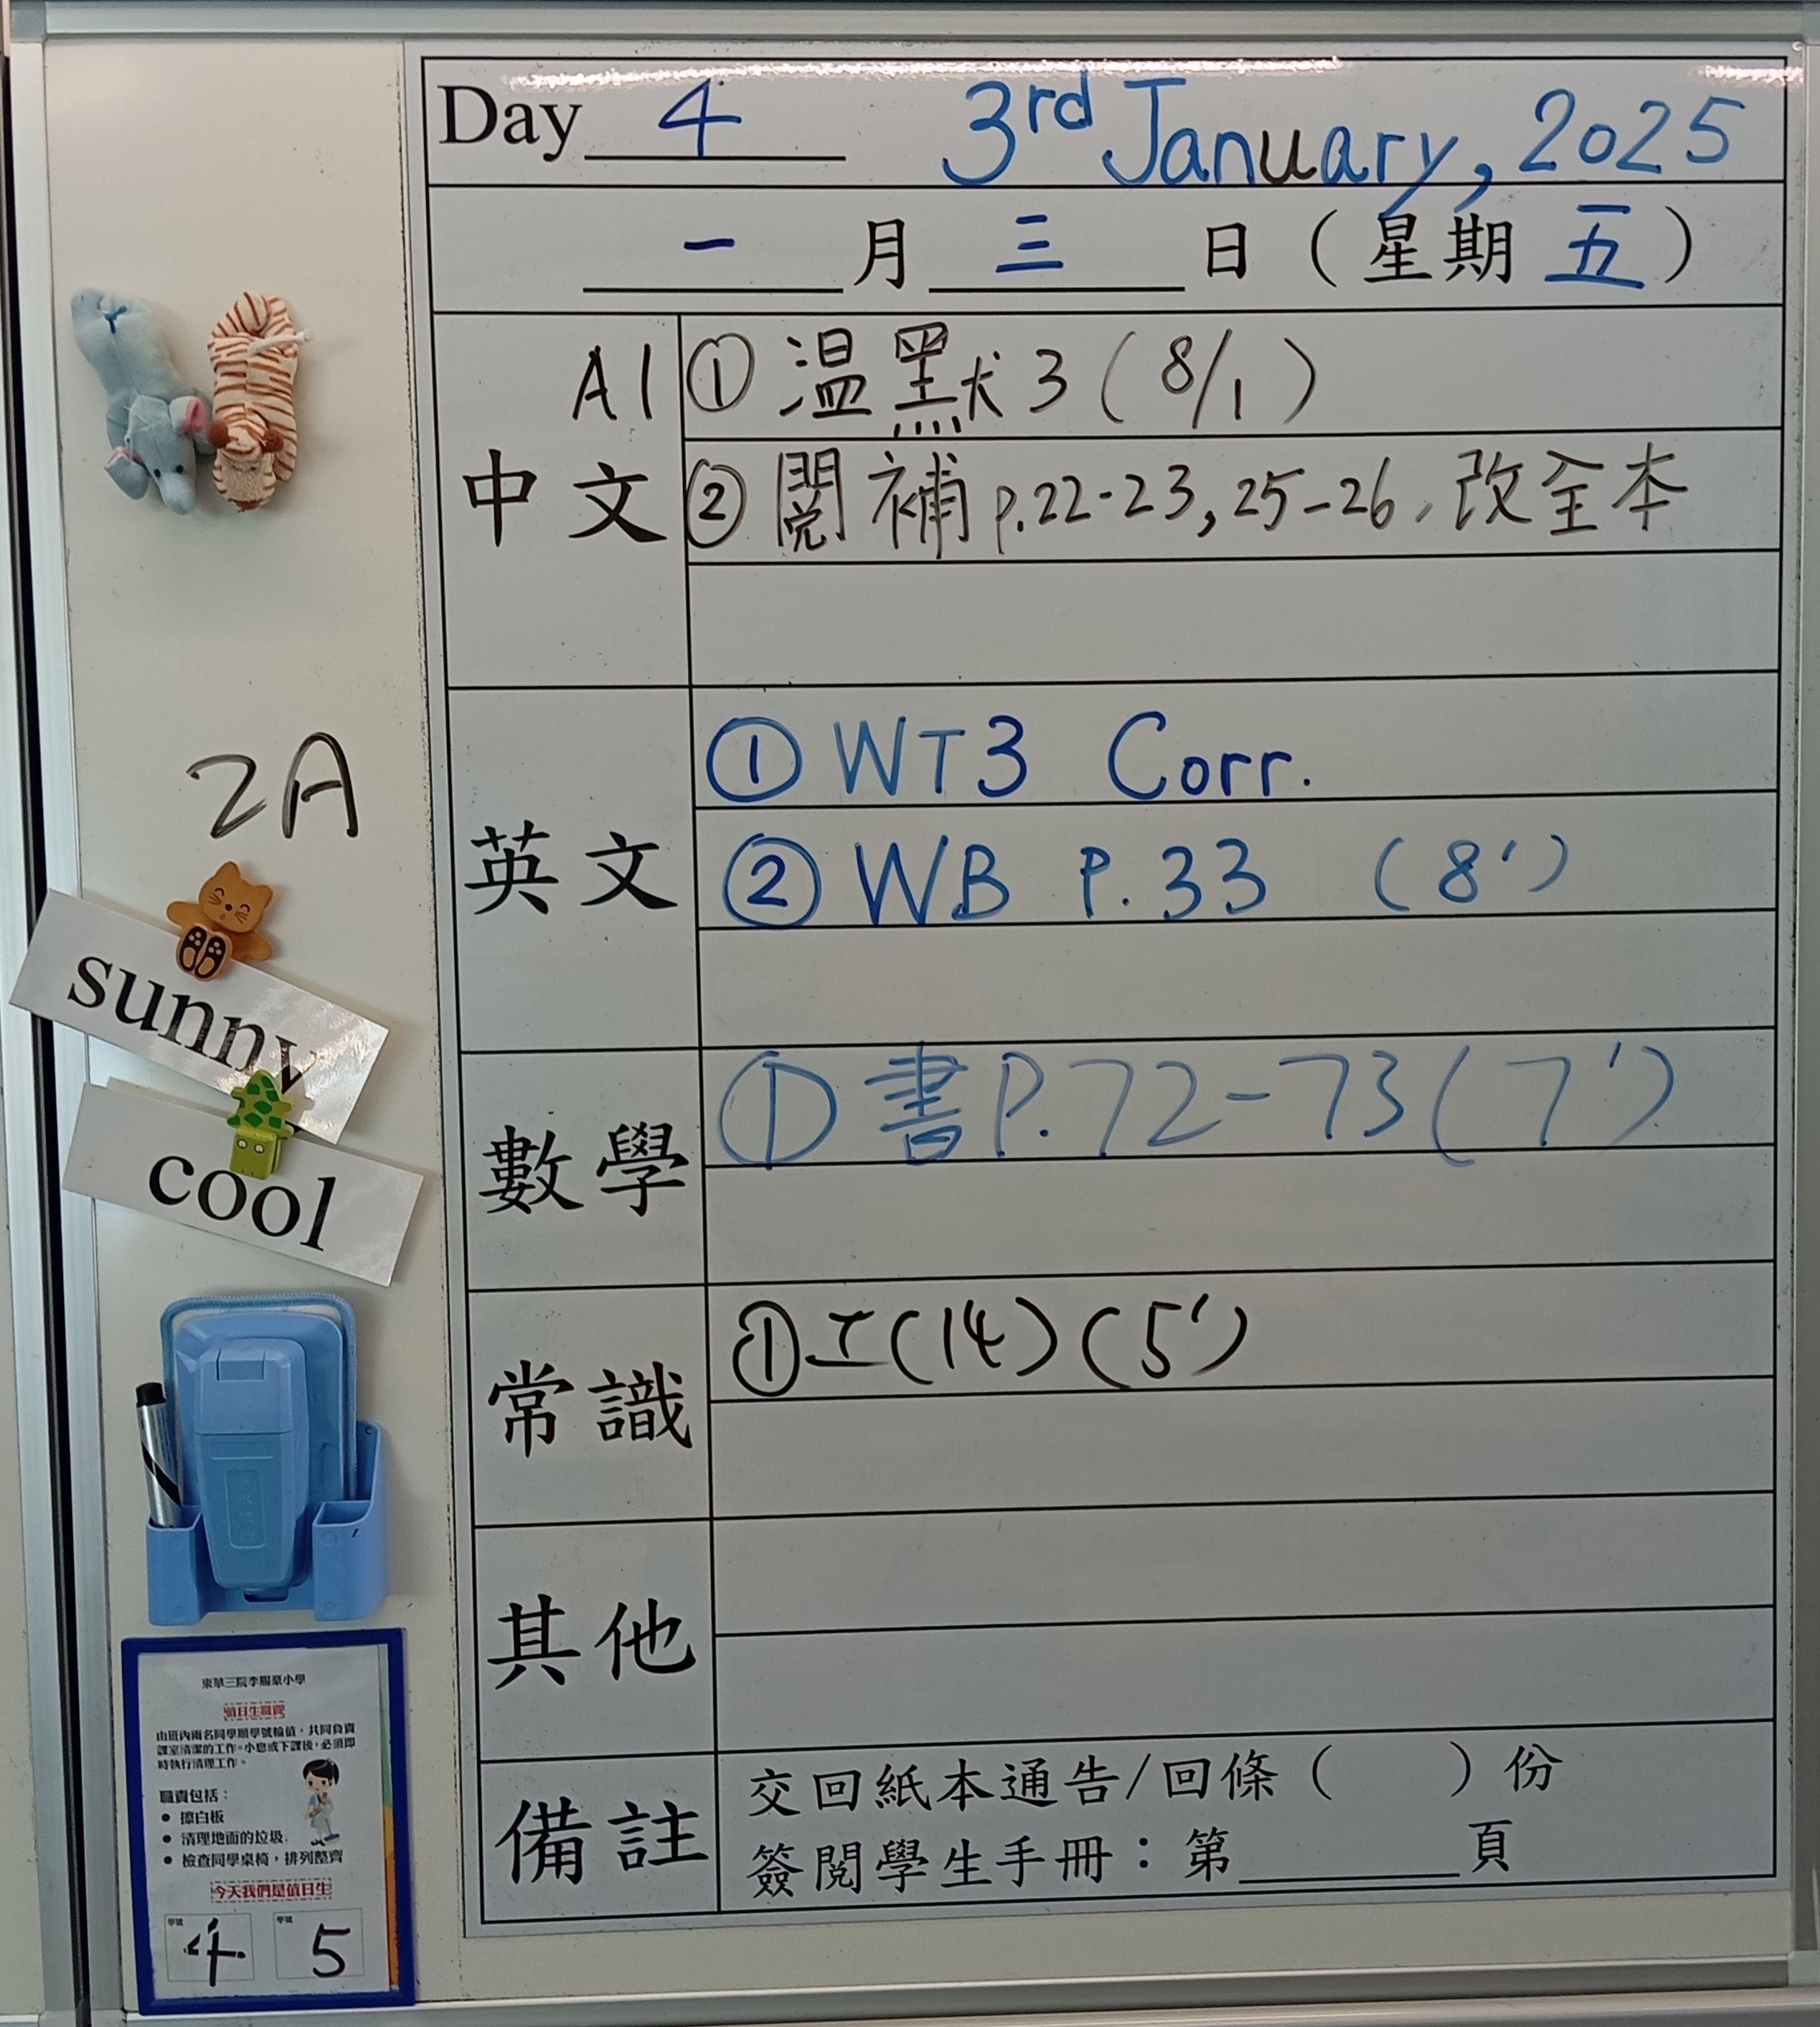 Day 4 3rd January, 2025
一月三日（星期五）
中文 A1
① 温默3 (8/1)
② 閱補 p.22-23, 25-26, 改全本
英文
① WT3 Corr.
② WB P.33 (8')
數學
① 書P.72-73 (7')
常識
① 工(14) (5')
其他
備註
交回紙本通告/回條（ ）份
簽閱學生手冊：第______頁
2A
sunny
cool
東華三院李賜豪小學
值日生職責
由班內兩名同學順學號輪值，共同負責
課室清潔的工作。小息或下課後，必須即
時執行清理工作。
職責包括：
● 擦白板
● 清理地面的垃圾
● 檢查同學桌椅，排列整齊
今天我們是值日生
學號 4 學號 5